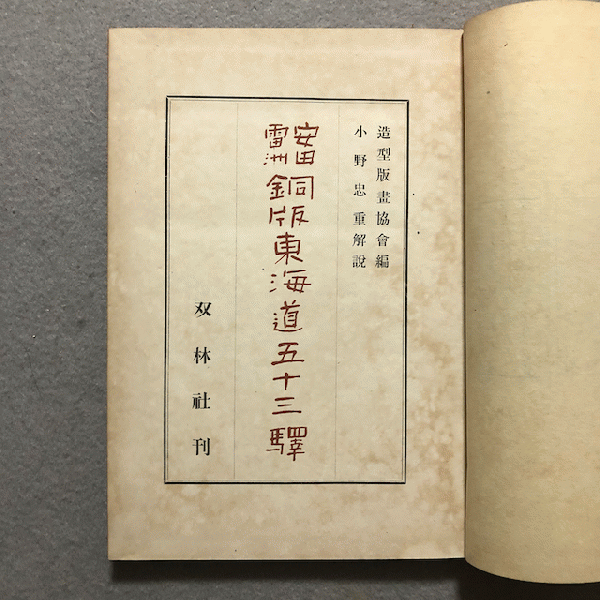 造型版畫協會編
小野忠重解說
安田
雷洲
銅版東海道五十三驛
双林社刊